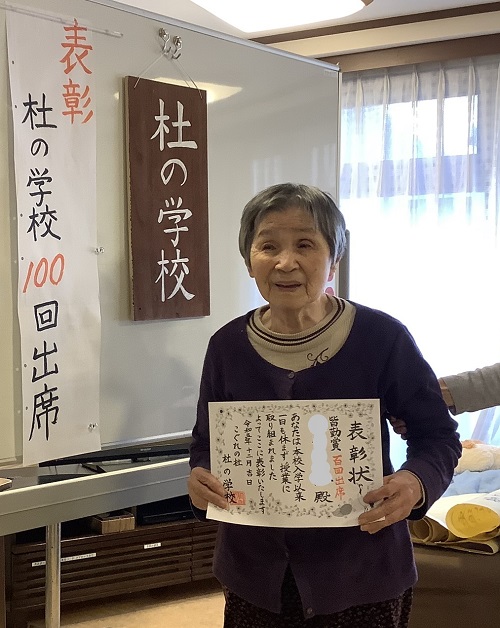 表彰
杜の学校100回出席
杜の学校
表彰状
皆勤賞 百回出席
殿
あなたは本校入学以来
一日も休まず、授業に
取り組まれました
よってここに表彰いたします
令和五年十二月吉日
こぐれの杜
杜の学校